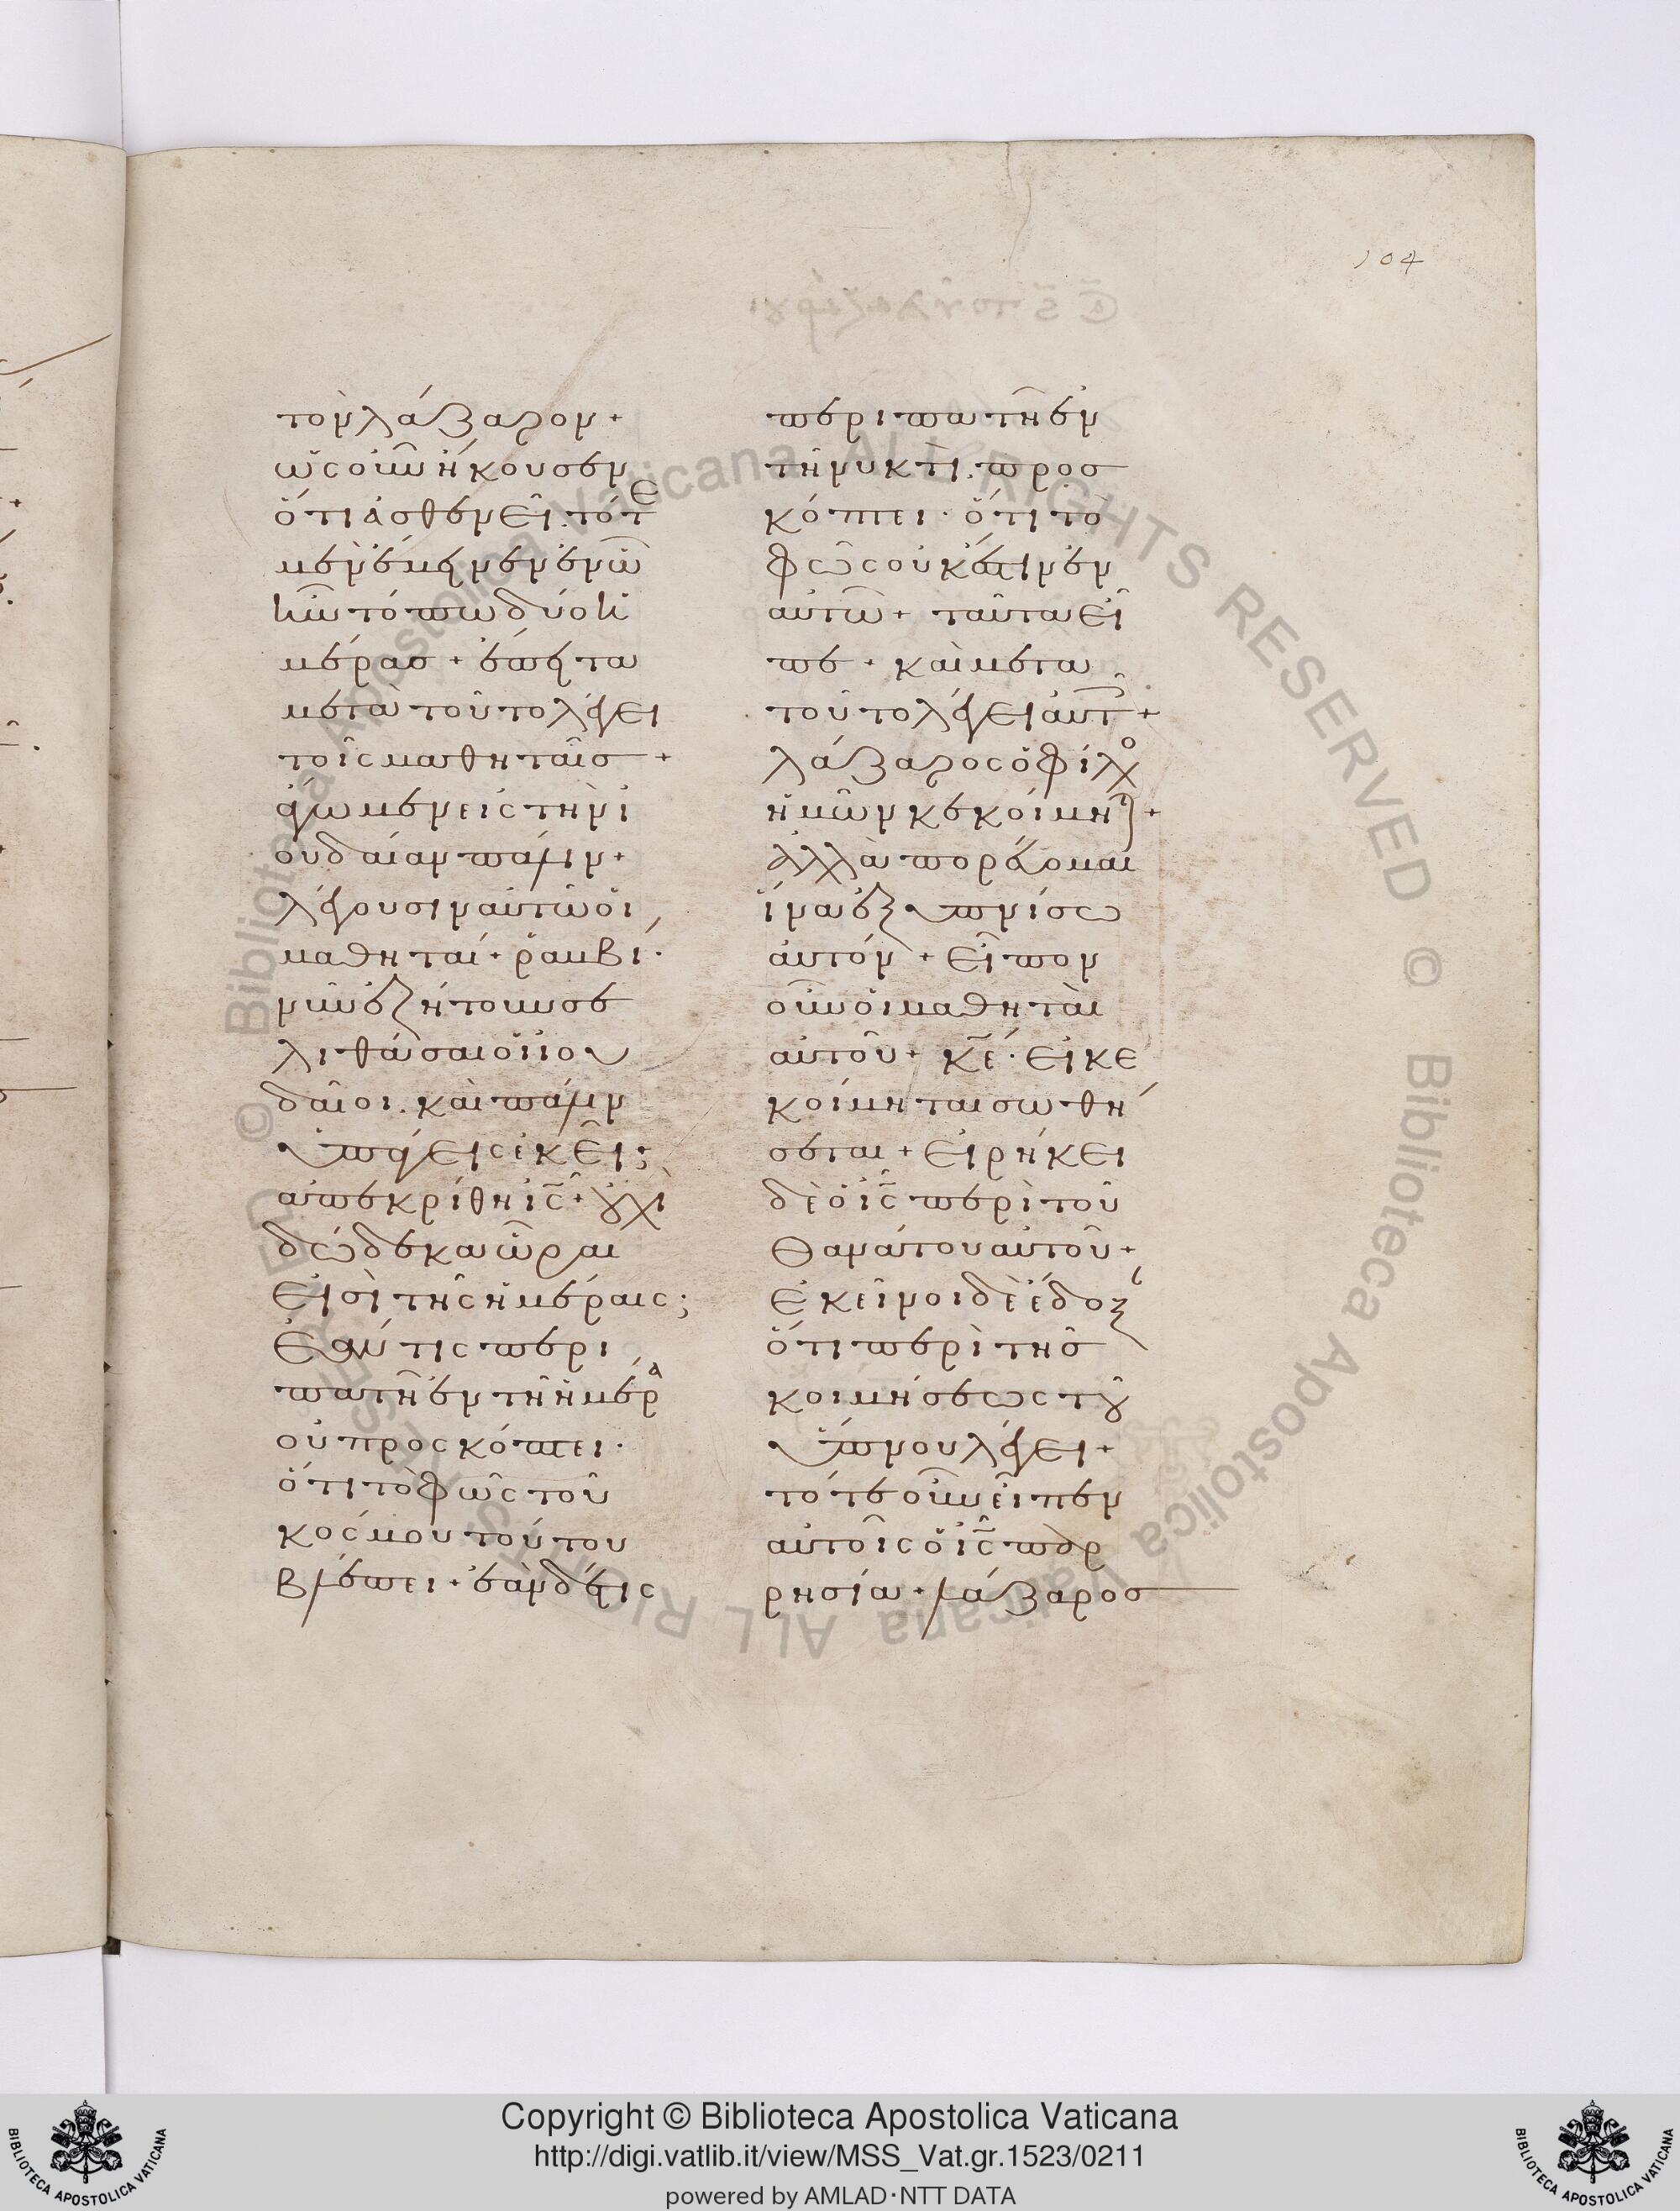 104
τὸν λάζαρον +
ὡς οὖν ἤκουσεν
ὅτι ἀσθενεῖ. τότε
μὲν ἔμεινεν ἐν ὧ
ἦν τόπω δύο ἡ
μέρας + ἔπειτα
μετὰ τοῦτο λέγει
τοῖς μαθηταῖς +
ἄγωμεν εἰς τὴν ἰ
ουδαίαν πάλιν +
λέγουσιν αὐτῶ οἱ
μαθηταί + ῥαμβί ·
νῦν ἐζήτουν σε
λιθάσαι οἱ ἰου
δαῖοι. καὶ πάλιν
ὑπάγεις ἐκεῖ;
ἀπεκρίθη ἰς̄ + οὐχὶ
δώδεκα ὧραι
εἰσὶ τῆς ἡμέρας;
ἐάν τις περι
πατῆ ἐν τῆ ἡμέρα
οὐ προσκόπτει ·
ὅτι τὸ φῶς τοῦ
κόσμου τούτου
βλέπει + ἐὰν δέ τις
περιπατῆ ἐν
τῆ νυκτὶ. προσ
κόπτει · ὅτι τὸ
φῶς οὐκ ἔστιν ἐν
αὐτῶ + ταῦτα εἶ
πε + καὶ μετὰ
τοῦτο λέγει αὐτ +
λάζαρος ὁ φίλο
ἡμῶν κεκοίμη +
ἀλλὰ πορεύομαι
ἵνα ἐξυπνίσω
αὐτόν + εἶπον
οὖν οἱ μαθηταὶ
αὐτοῦ + κ̄ε̄ · εἰ κε
κοίμηται σωθή
σεται + εἰρήκει
δὲ ὁ ἰς̄ περὶ τοῦ
θανάτου αὐτοῦ +
ἐκεῖνοι δὲ ἔδοξ
ὅτι περὶ τῆς
κοιμήσεως τοῦ
ὕπνου λέγει +
τότε οὖν εἶπεν
αὐτοῖς ὁ ἰς̄ παρ
ρησία + λάζαρος
© Biblioteca Apostolica Vaticana ALL RIGHTS RESERVED © Biblioteca Apostolica Vaticana ALL RIGHTS RESERVED
Copyright © Biblioteca Apostolica Vaticana
http://digi.vatlib.it/view/MSS_Vat.gr.1523/0211
powered by AMLAD·NTT DATA
BIBLIOTECA APOSTOLICA VATICANA
BIBLIOTECA APOSTOLICA VATICANA